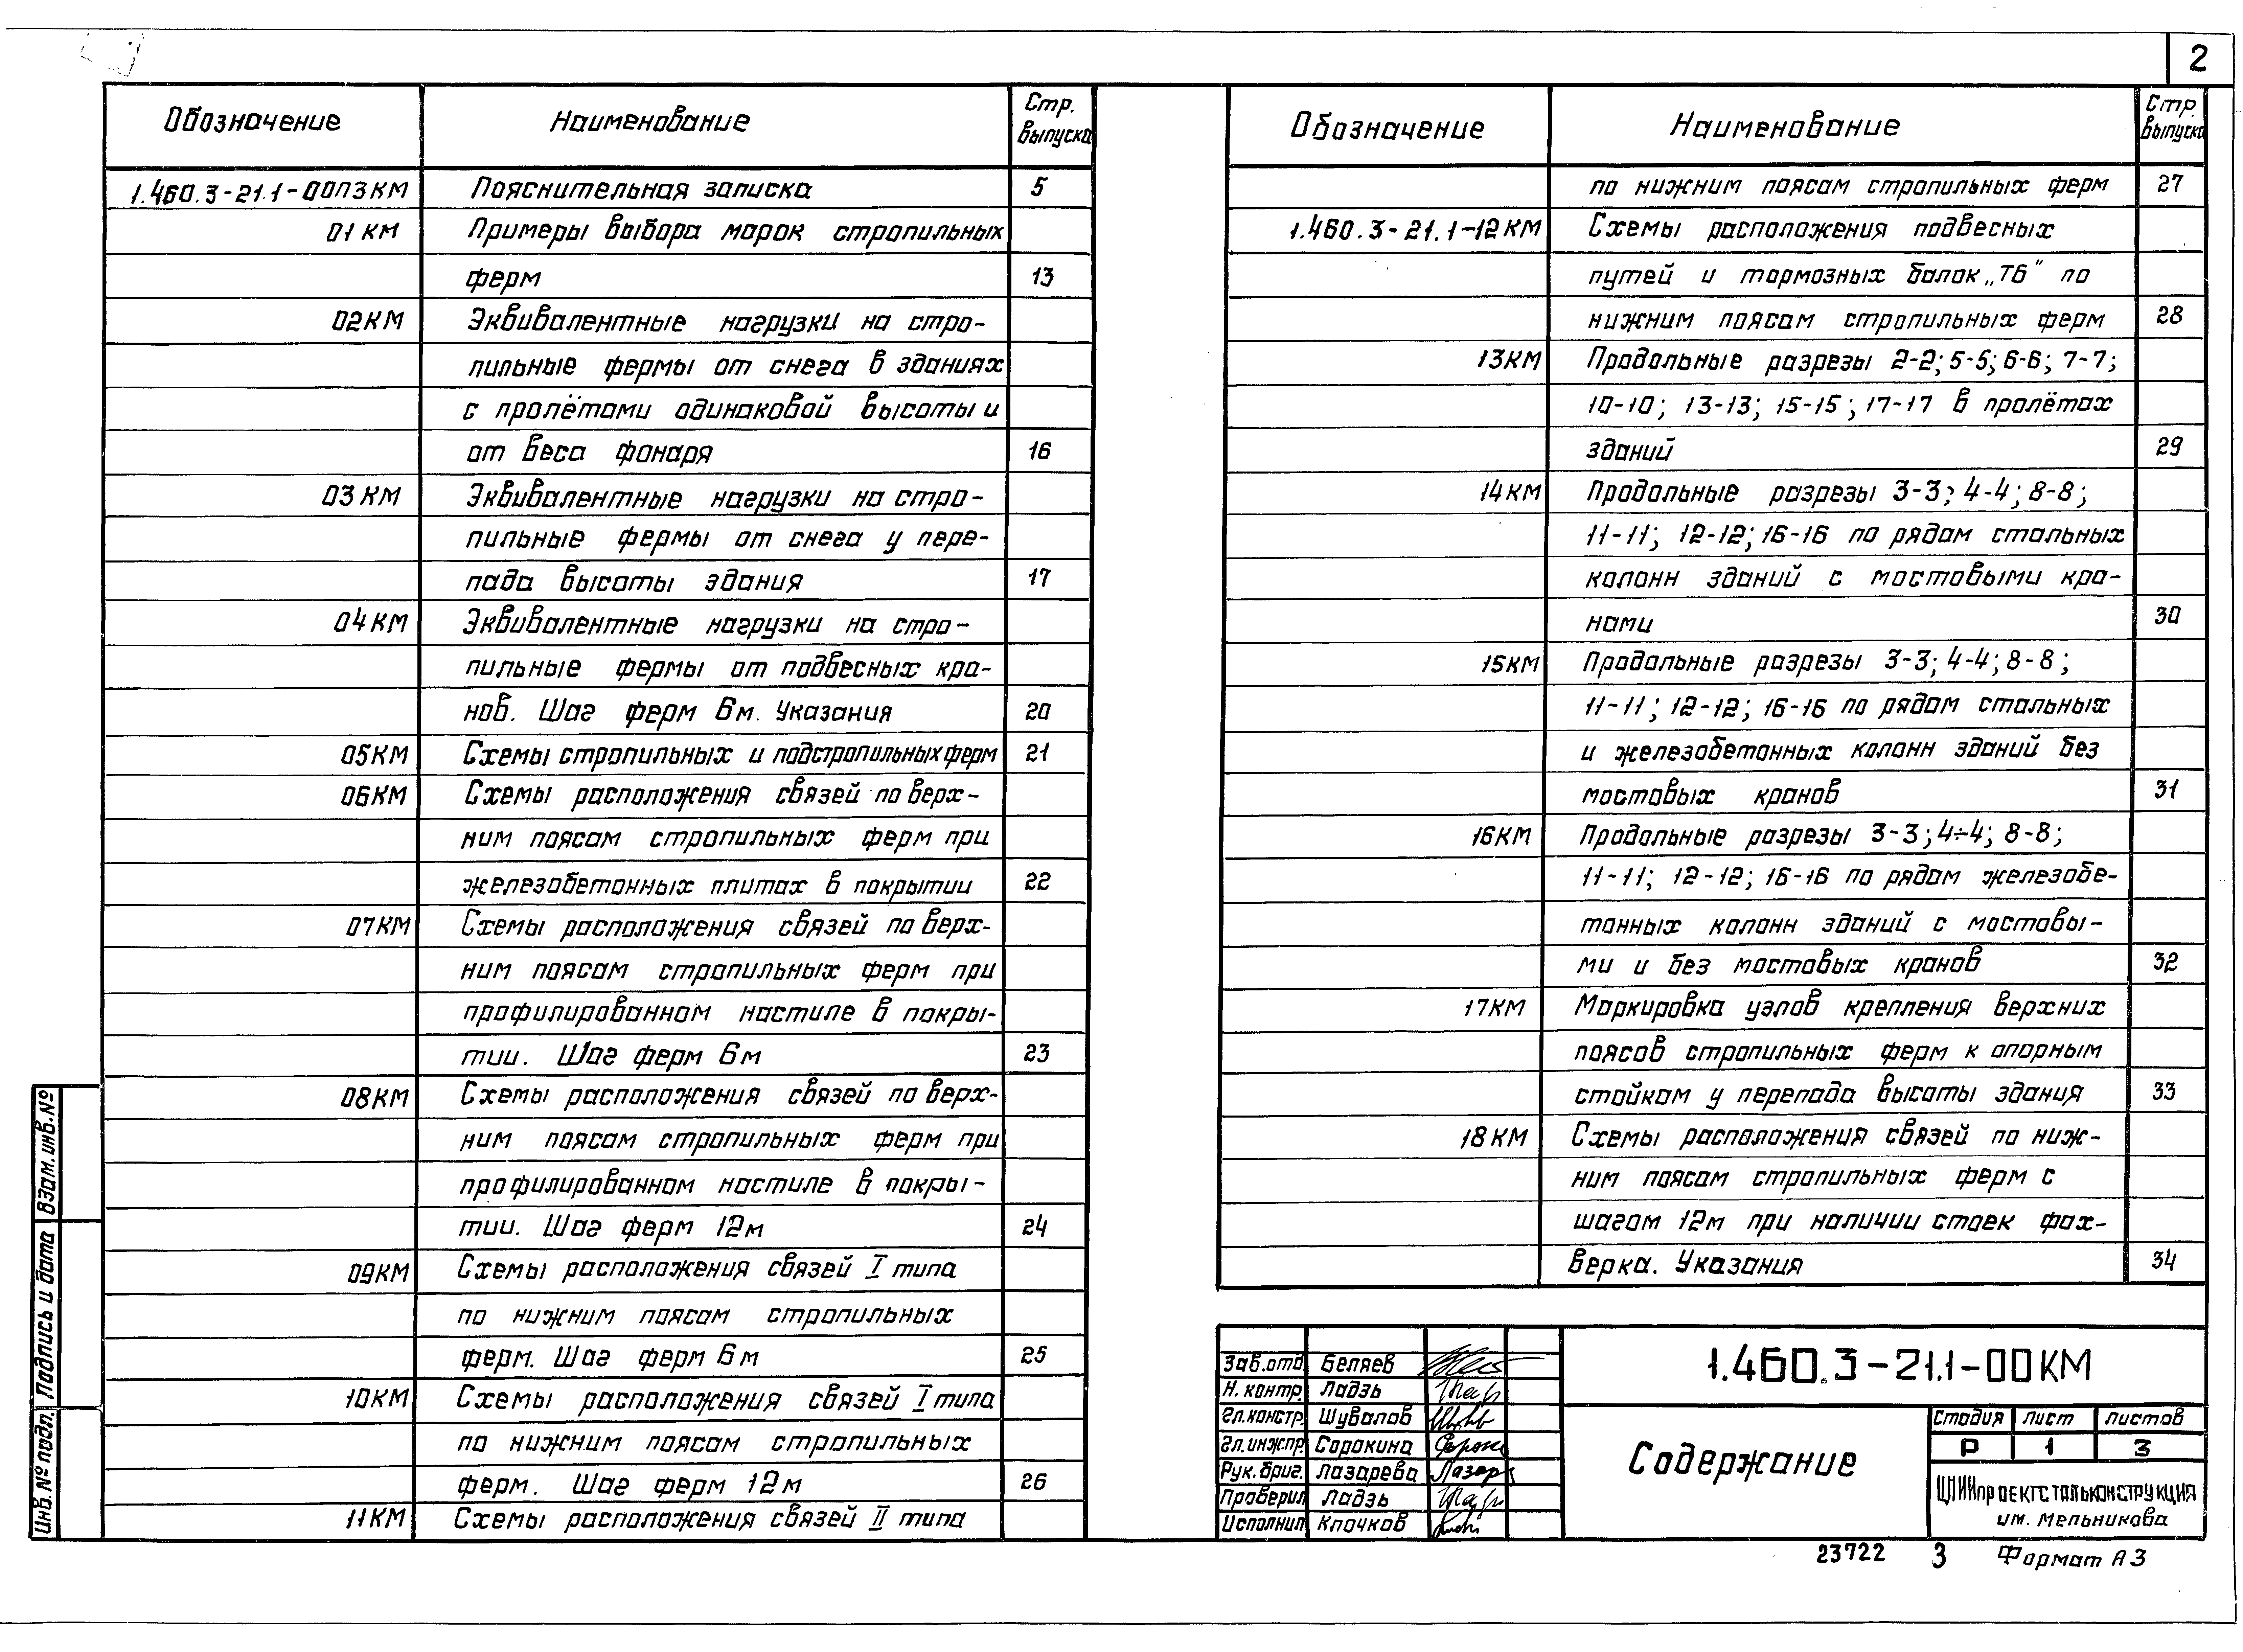 2
Обозначение Наименование Стр. выпуска
1.460.3-21.1-00ПЗКМ Пояснительная записка 5
01КМ Примеры выбора марок стропильных
ферм 13
02КМ Эквивалентные нагрузки на стро-
пильные фермы от снега в зданиях
с пролётами одинаковой высоты и
от веса фонаря 16
03КМ Эквивалентные нагрузки на стро-
пильные фермы от снега у пере-
пада высоты здания 17
04КМ Эквивалентные нагрузки на стро-
пильные фермы от подвесных кра-
нов. Шаг ферм 6м. Указания 20
05КМ Схемы стропильных и подстропильных ферм 21
06КМ Схемы расположения связей по верх-
ним поясам стропильных ферм при
железобетонных плитах в покрытии 22
07КМ Схемы расположения связей по верх-
ним поясам стропильных ферм при
профилированном настиле в покры-
тии. Шаг ферм 6м 23
08КМ Схемы расположения связей по верх-
ним поясам стропильных ферм при
профилированном настиле в покры-
тии. Шаг ферм 12м 24
09КМ Схемы расположения связей I типа
по нижним поясам стропильных
ферм. Шаг ферм 6м 25
10КМ Схемы расположения связей I типа
по нижним поясам стропильных
ферм. Шаг ферм 12м 26
11КМ Схемы расположения связей II типа
Обозначение Наименование Стр. выпуска
по нижним поясам стропильных ферм 27
1.460.3-21.1-12КМ Схемы расположения подвесных
путей и тормозных балок „ТБ" по
нижним поясам стропильных ферм 28
13КМ Продольные разрезы 2-2; 5-5; 6-6; 7-7;
10-10; 13-13; 15-15; 17-17 в пролётах
зданий 29
14КМ Продольные разрезы 3-3; 4-4; 8-8;
11-11; 12-12; 16-16 по рядам стальных
колонн зданий с мостовыми кра-
нами 30
15КМ Продольные разрезы 3-3; 4-4; 8-8;
11-11; 12-12; 16-16 по рядам стальных
и железобетонных колонн зданий без
мостовых кранов 31
16КМ Продольные разрезы 3-3; 4÷4; 8-8;
11-11; 12-12; 16-16 по рядам железобе-
тонных колонн зданий с мостовы-
ми и без мостовых кранов 32
17КМ Маркировка узлов крепления верхних
поясов стропильных ферм к опорным
стойкам у перепада высоты здания 33
18КМ Схемы расположения связей по ниж-
ним поясам стропильных ферм с
шагом 12м при наличии стоек фах-
верка. Указания 34
Взам. инв. №
Подпись и дата
Инв. № подл.
Зав.отд. Беляев
Н. контр. Ладзь
Гл.констр. Шувалов
Гл.инж.пр. Сорокина
Рук. бриг. Лазарева
Проверил Ладзь
Исполнил Клочков
1.460.3-21.1-00КМ
Содержание
Стадия Лист Листов
Р 1 3
ЦНИИпроектстальконструкция
им. Мельникова
23722 3 Формат А3